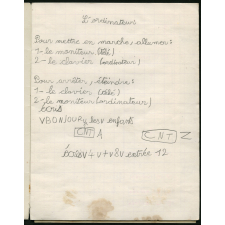 L'ordinateur
Pour mettre en marche, allumer :
1 - le moniteur (télé)
2 - le clavier (ordinateur)
Pour arrêter, éteindre :
1 - le clavier (télé)
2 - le moniteur (ordinateur)
écris
VBONJOUR les v enfants
CNT A
CNT Z
v + v + v 8v entrée 12